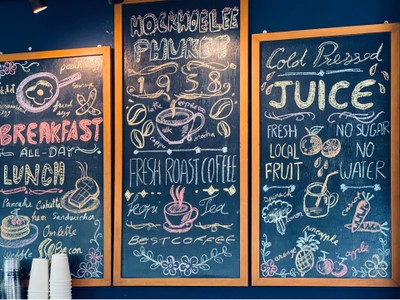 BREAKFAST
ALL-DAY
LUNCH
Pancake
Ciabatta
ham Sandwich
Omlette
Waffle
Bacon
HOCKHOELEE
PHUKET
1958
latte
espresso
mocha
FRESH ROAST COFFEE
Kopi
Tea
BEST COFFEE
Cold Pressed
JUICE
FRESH
LOCAL
FRUIT
NO SUGAR
NO
WATER
carrot
orange
pineapple
apple